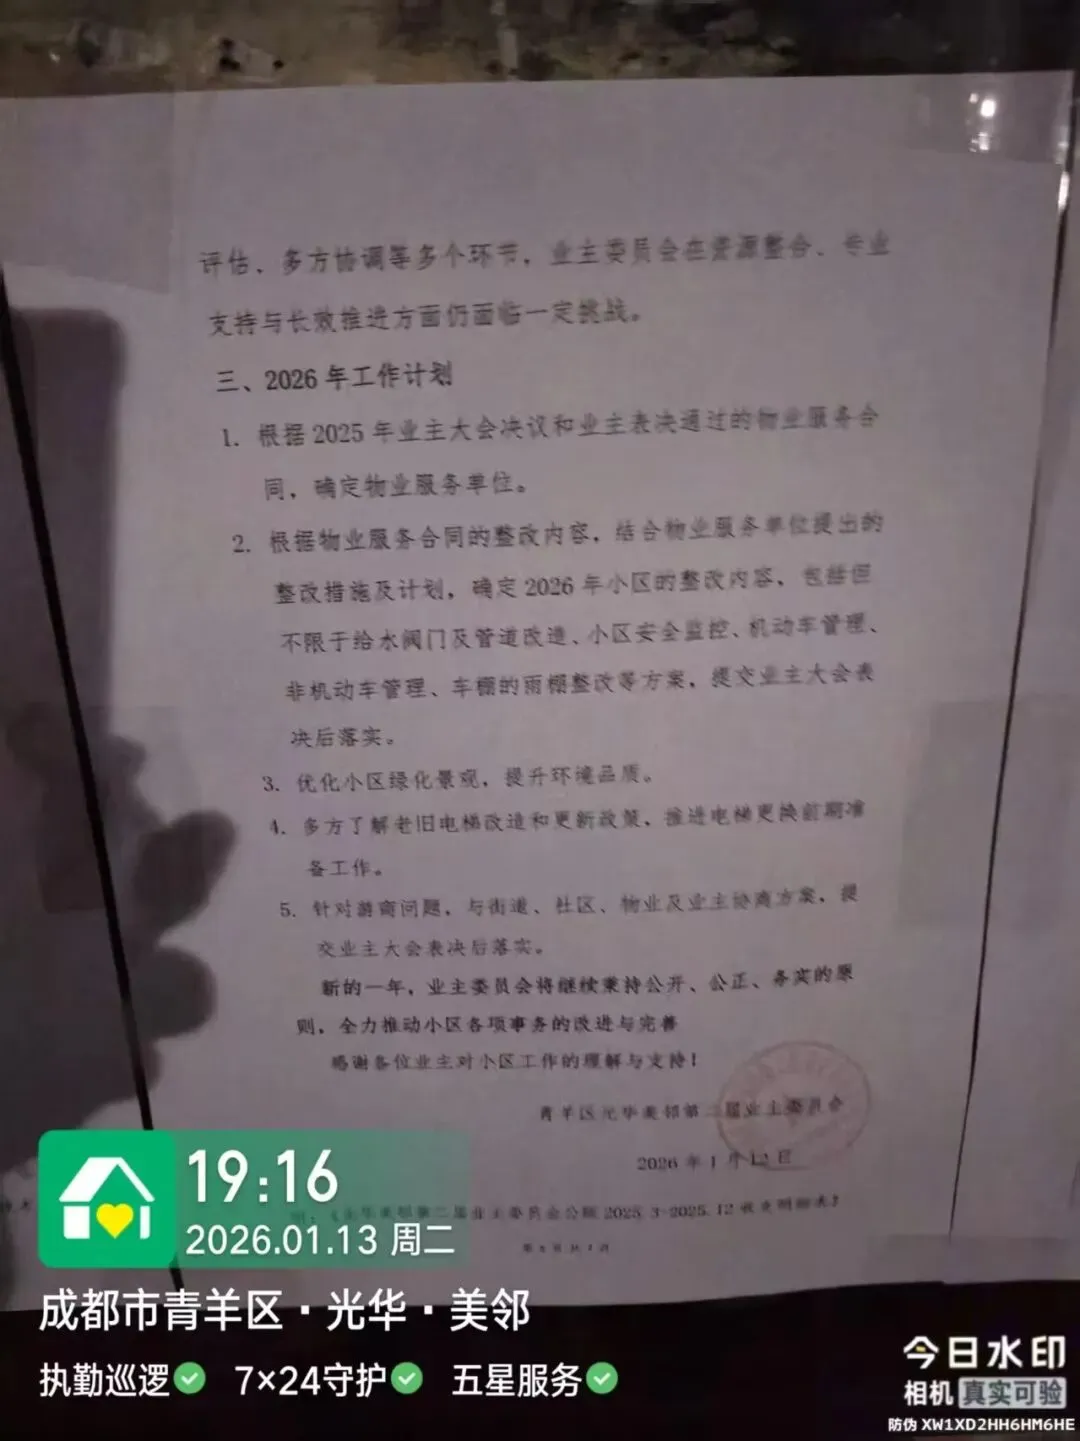 评估、多方协调等多个环节，业主委员会在资源整合、专业
支持与长效推进方面仍面临一定挑战。
三、2026 年工作计划
1. 根据 2025 年业主大会决议和业主表决通过的物业服务合
同，确定物业服务单位。
2. 根据物业服务合同的整改内容，结合物业服务单位提出的
整改措施及计划，确定 2026 年小区的整改内容，包括但
不限于给水阀门及管道改造、小区安全监控、机动车管理、
非机动车管理、车棚的雨棚整改等方案，提交业主大会表
决后落实。
3. 优化小区绿化景观，提升环境品质。
4. 多方了解老旧电梯改造和更新政策，推进电梯更换前期准
备工作。
5. 针对游商问题，与街道、社区、物业及业主协商方案，提
交业主大会表决后落实。
新的一年，业主委员会将继续秉持公开、公正、务实的原
则，全力推动小区各项事务的改进与完善
感谢各位业主对小区工作的理解与支持！
青羊区光华美邻第二届业主委员会
2026 年 1 月 12 日
光华美邻第二届业主委员会公账 2025.3-2025.12 收支明细表》
19:16
2026.01.13 周二
成都市青羊区·光华·美邻
执勤巡逻 7×24守护 五星服务
今日水印
相机 真实可验
防伪 XW1XD2HH6HM6HE